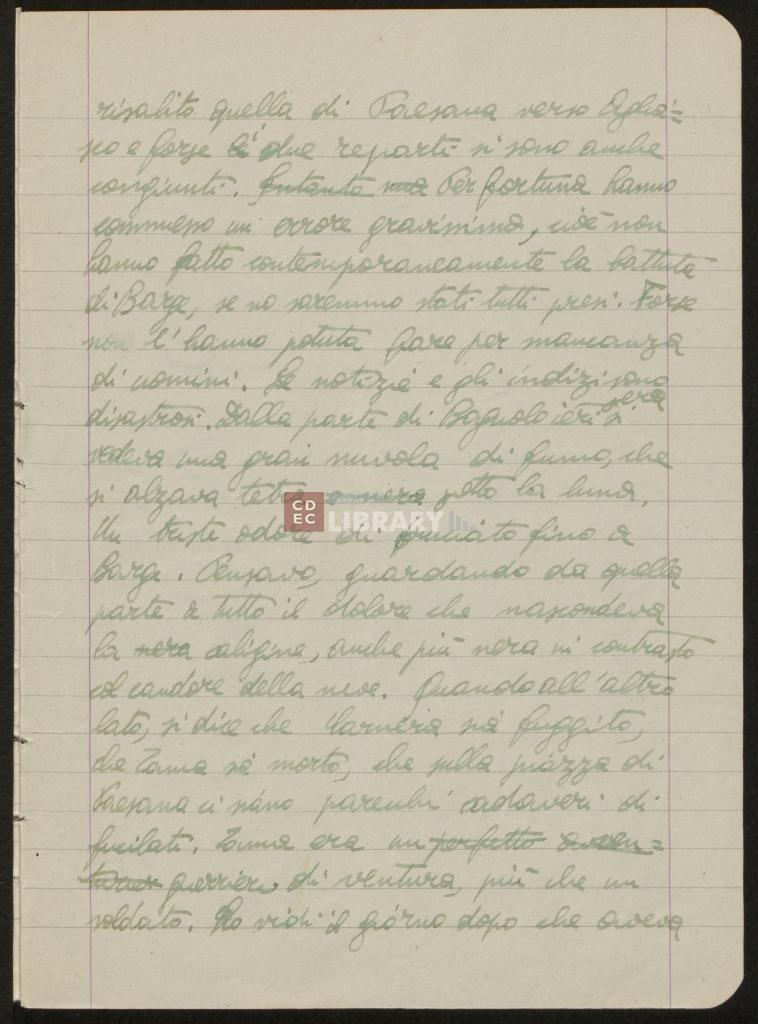 risalito quella di Paesana verso Oglia=
no e forse i due reparti si sono anche
congiunti. Intanto ma Per fortuna hanno
commesso un errore gravissimo, cioè non
hanno fatto contemporaneamente la battuta
di Barge, se no saremmo stati tutti presi. Forse
non l'hanno potuta fare per mancanza
di uomini. Le notizie e gli indizi sono
disastrosi. Dalla parte di Bagnolo ieri sera si
vedeva una gran nuvola di fumo, che
si alzava tetra e nera sotto la luna.
Un triste odore di bruciato fino a
Barge. Pensavo, guardando da quella
parte a tutto il dolore che nascondeva
la nera caligine, anche più nera in contrasto
col candore della neve. Quando all'altro
lato, si dice che Carnera sia fuggito,
che Zama sia morto, che sulla piazza di
Paesana ci siano parecchi cadaveri di
fucilati. Zama era un perfetto avven=
turier guerriero di ventura, più che un
soldato. Lo vidi il giorno dopo che aveva
CDEC LIBRARY